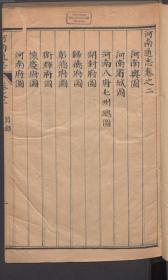 河南通志卷之二
河南輿圖
河南省城圖
河南八府七州總圖
開封府圖
歸德府圖
彰德府圖
衛輝府圖
懷慶府圖
河南府圖
目錄